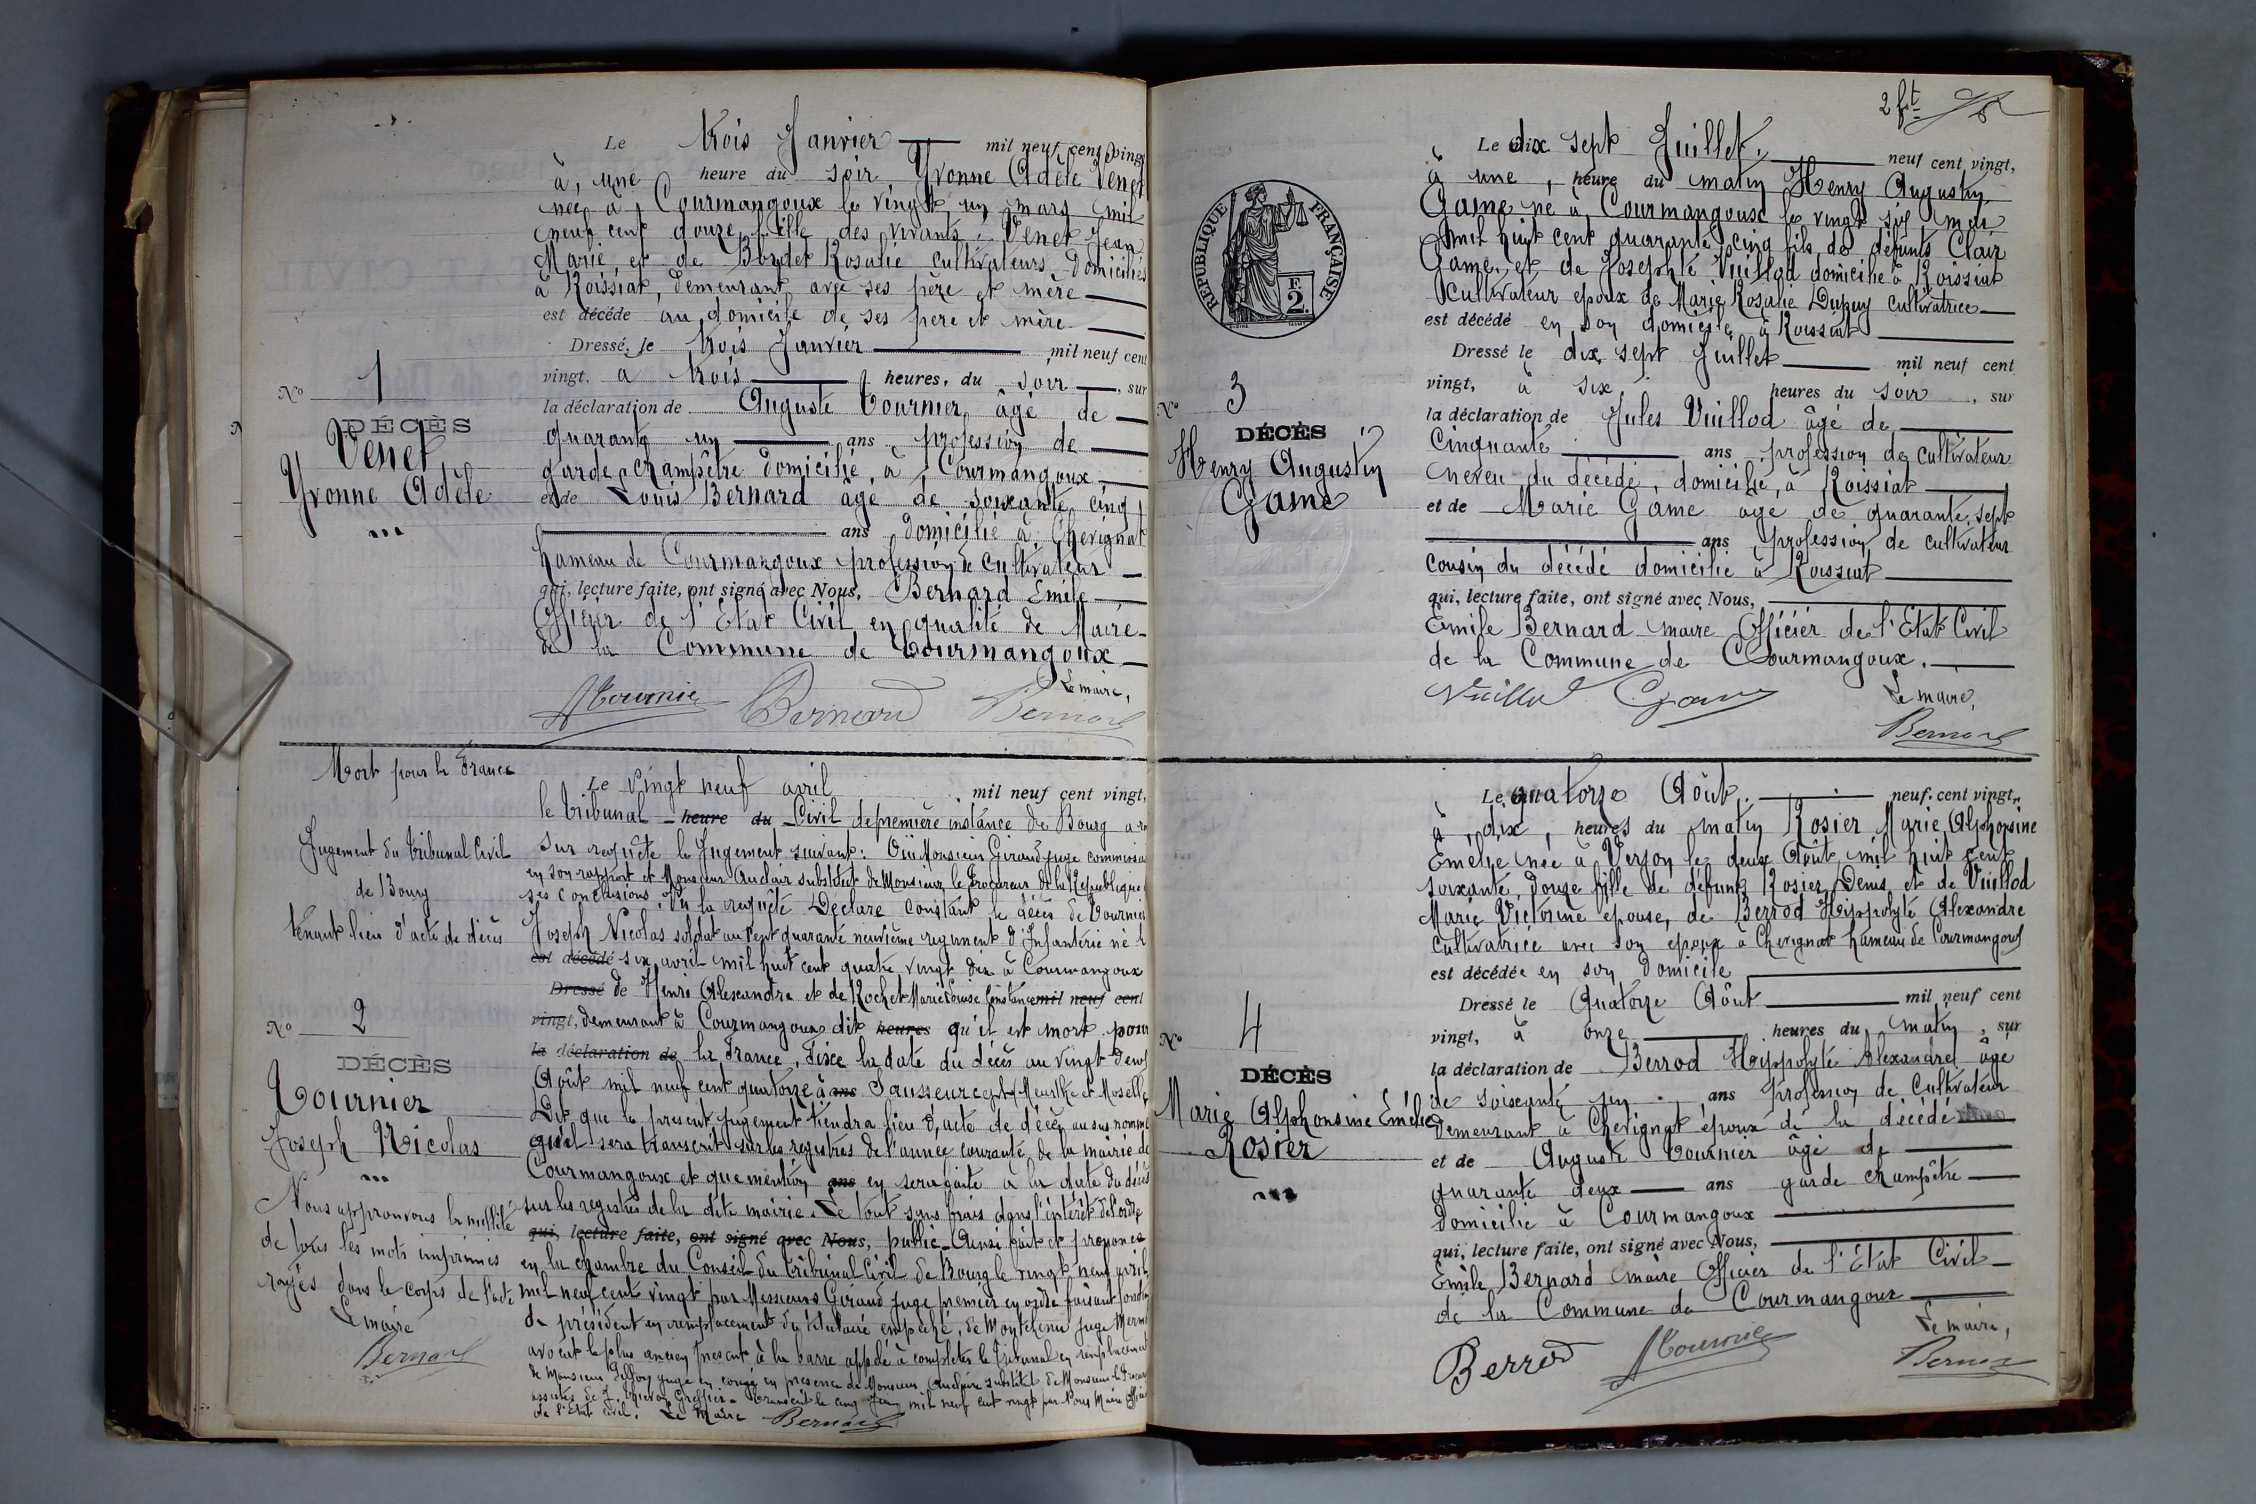 Le trois Janvier mil neuf cent vingt
à, une heure du soir Yvonne Adèle Venet
née à Courmangoux le vingt un mars mil
neuf cent douze fille des vivants Venet Jean
Marie et de Boudet Rosalie cultivateurs domiciliés
à Roissiat, demeurant avec ses père et mère
est décédé au domicile de ses père et mère
Dressé, le trois Janvier mil neuf cent
vingt, à trois heures, du soir, sur
la déclaration de Auguste Tournier, âgé de
quarante un ans profession de
garde champêtre domicilié à Courmangoux,
et de Louis Bernard âgé de soixante cinq
ans domicilié à Chevignat
hameau de Courmangoux profession de cultivateur
qui, lecture faite, ont signé avec Nous, Bernard Emile
Officier de l'Etat Civil en qualité de Maire
de la Commune de Courmangoux
Le maire,
ATournier Bernard Bernard
No 1
DÉCÈS
Venet
Yvonne Adèle
Mort pour la France
Jugement du tribunal Civil
de Bourg
tenant lieu d'acte de décès
No 2
DÉCÈS
Tournier
Joseph Nicolas
Nous approuvons la nullité
de tous les mots imprimés
rayés dans le corps de l'acte
Le maire
Bernard
Le vingt neuf avril mil neuf cent vingt,
le tribunal heure du Civil de première instance de Bourg a
sur requête le Jugement suivant: Ouï Monsieur Giraud juge
en son rapport et Monsieur Auclair substitut de Monsieur le Procureur de la République
ses conclusions. Vu la requête Déclare constant le décès de Tournier
Joseph Nicolas soldat au cent quarante neuvième régiment d'Infanterie né le
est décédé six avril mil huit cent quatre vingt dix à Courmangoux
Dressé de Henri Alexandre et de Rochet Marie Louise Constance mil neuf cent
vingt, demeurant à Courmangoux dit heures qu'il est mort pour
la déclaration de la France, fixe la date du décès au vingt deux
Août mil neuf cent quatorze à ans Meurthe et Moselle
Dit que le présent jugement tiendra lieu d'acte de décès au sus nommé
qu'il sera transcrit sur les registres de l'année courante de la mairie de
Courmangoux et que mention ans en sera faite à la date du décès
sur les registres de la dite mairie. Le tout sans frais dans l'intérêt de l'ordre
qui, lecture faite, ont signé avec Nous, public. Ainsi fait et prononcé
en la chambre du Conseil du tribunal Civil de Bourg le vingt neuf avril
mil neuf cent vingt par Messieurs Giraud juge premier en ordre faisant
de président en remplacement du titulaire empêché, de Montchenu juge
avocat le plus ancien présent à la barre appelé à compléter le Tribunal en remplacement
de Monsieur juge en congé en présence de Monsieur Auclair substitut de Monsieur le
assistés de Greffier. Transcrit le cinq mil neuf cent vingt par Nous Maire
de l'Etat Civil. Le Maire Bernard
2 ft
RÉPUBLIQUE FRANÇAISE
F.
2.
Le dix sept Juillet, neuf cent vingt,
à une, heure du matin Henry Augustin
Game né à Courmangoux le vingt six mai
mil huit cent quarante cinq fils de défunts Clair
Game, et de Josephte Vuillod domicilié à Roissiat
cultivateur époux de Marie Rosalie Dupuy cultivatrice
est décédé en son domicile à Roissiat
Dressé le dix sept Juillet mil neuf cent
vingt, à six heures du soir, sur
la déclaration de Jules Vuillod âgé de
Cinquante ans profession de cultivateur
neveu du décédé, domicilié, à Roissiat
et de Marie Game âgé de quarante sept
ans profession de cultivateur
cousin du décédé domicilié à Roissiat
qui, lecture faite, ont signé avec Nous,
Emile Bernard maire Officier de l'Etat Civil
de la Commune de Courmangoux.
Vuillod Game
Le maire,
Bernard
No 3
DÉCÈS
Henry Augustin
Game
Le quatorze Août neuf cent vingt,
à dix, heures du matin Rosier Marie Alphonsine
Emélie née à Verjon le deux Août mil huit cent
soixante douze fille de défunts Rosier Denis et de Vuillod
Marie Victorine épouse, de Berrod Hippolyte Alexandre
cultivatrice avec son époux à Chevignat hameau de Courmangoux
est décédée en son domicile
Dressé le Quatorze Août mil neuf cent
vingt, à onze heures du matin, sur
la déclaration de Berrod Hippolyte Alexandre âgé
de soixante un ans profession de Cultivateur
demeurant à Chevignat époux de la décédé
et de Auguste Tournier âgé de
quarante deux ans garde champêtre
domicilié à Courmangoux
qui, lecture faite, ont signé avec Nous,
Emile Bernard maire Officier de l'Etat Civil
de la Commune de Courmangoux
Le maire,
Berrod ATournier Bernard
No 4
DÉCÈS
Marie Alphonsine Emélie
Rosier